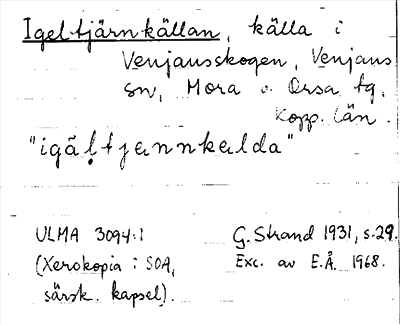 Igeltjärnkällan, källa i
Venjansskogen, Venjans
sn, Mora o. Orsa tg,
Kopp. län.
"igäl̥tjannkalda"
ULMA 3094:1
(Xerokopia i SOA,
särsk. kapsel).
G. Strand 1931, s. 29.
Exc. av E.Å. 1968.